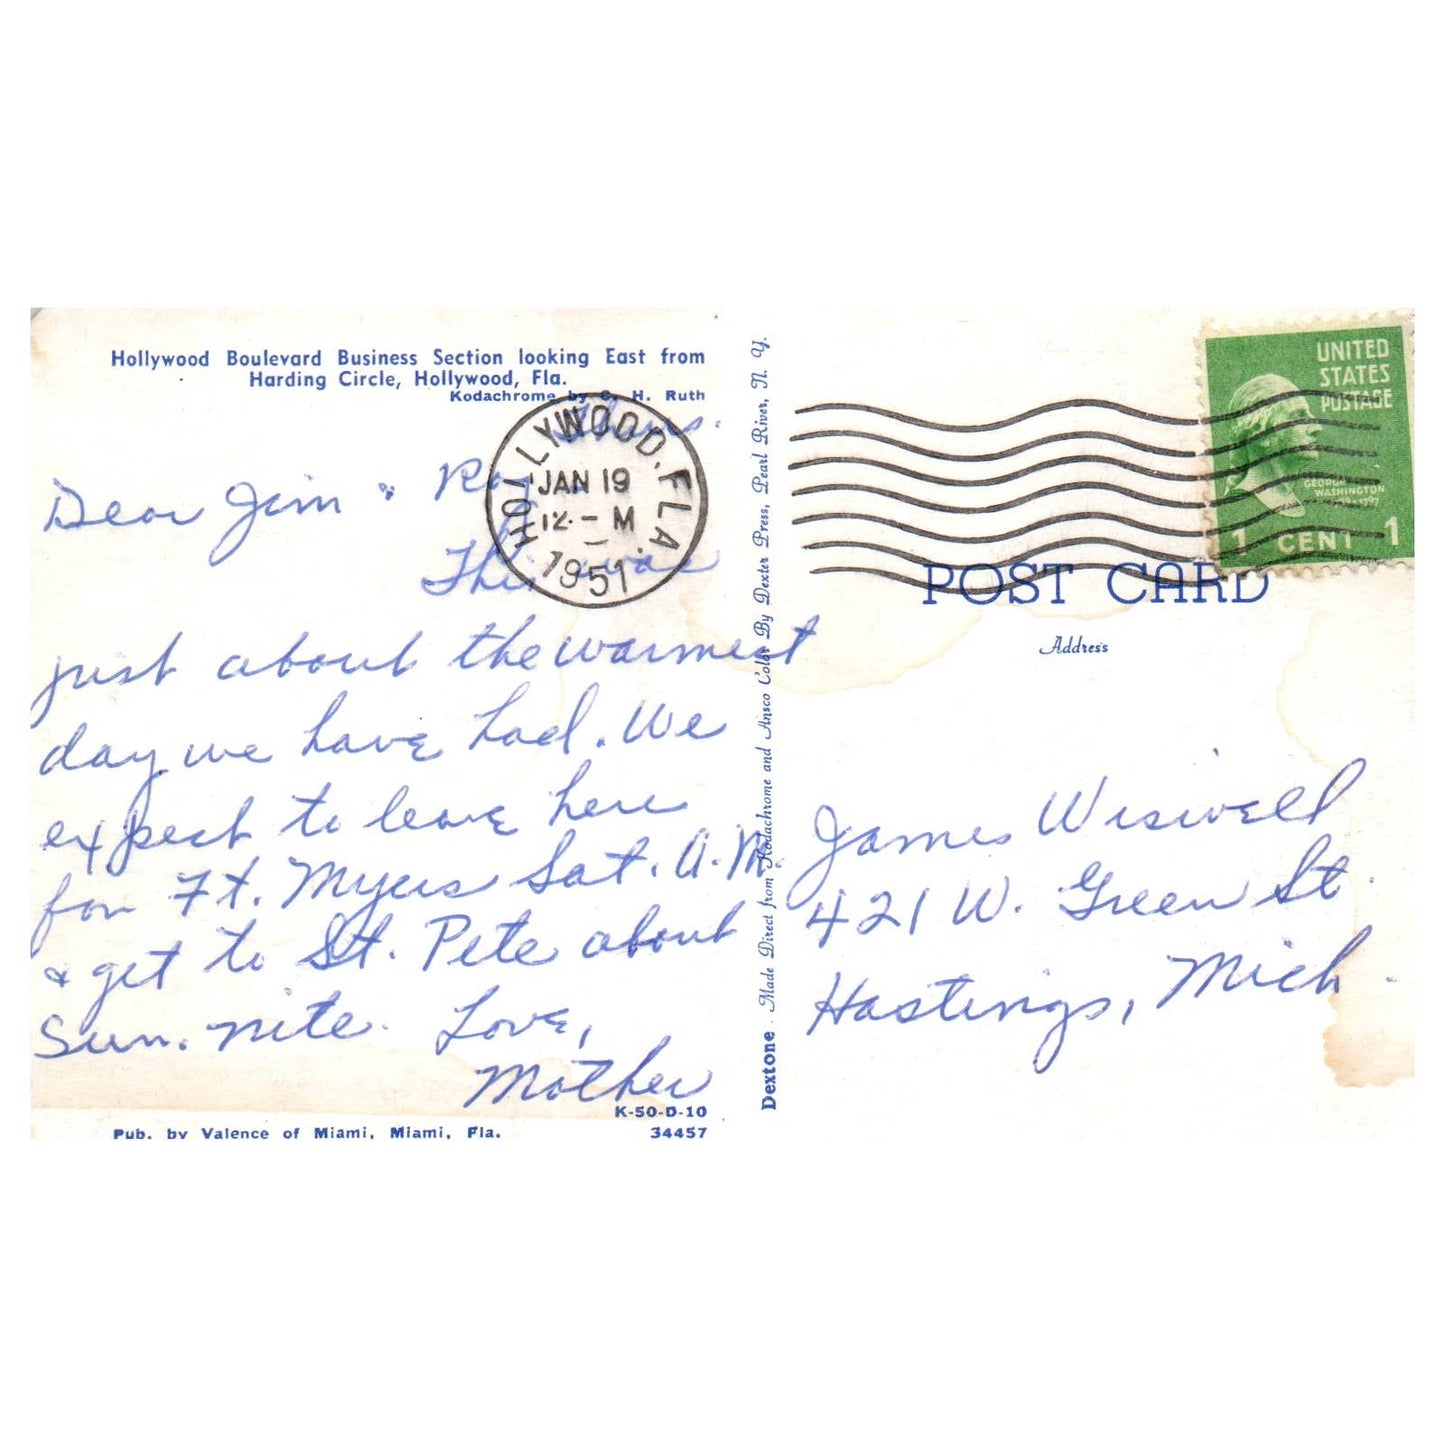 Hollywood Boulevard Business Section looking East from
Harding Circle, Hollywood, Fla.
Kodachrome by C. H. Ruth
Thurs.
Dear Jim &
This was
just about the warmest
day we have had. We
expect to leave here
for Ft. Myers Sat. A.M.
& get to St. Pete about
Sun. nite. Love,
Mother
K-50-D-10
Pub. by Valence of Miami, Miami, Fla.
34457
HOLLYWOOD, FLA.
JAN 19
12 - M
1951
Dextone . Made Direct from Kodachrome and Ansco Color By Dexter Press, Pearl River, N. Y.
UNITED
STATES
POSTAGE
GEORGE
WASHINGTON
1 CENT 1
POST CARD
Address
James Wiswell
421 W. Green St.
Hastings, Mich.